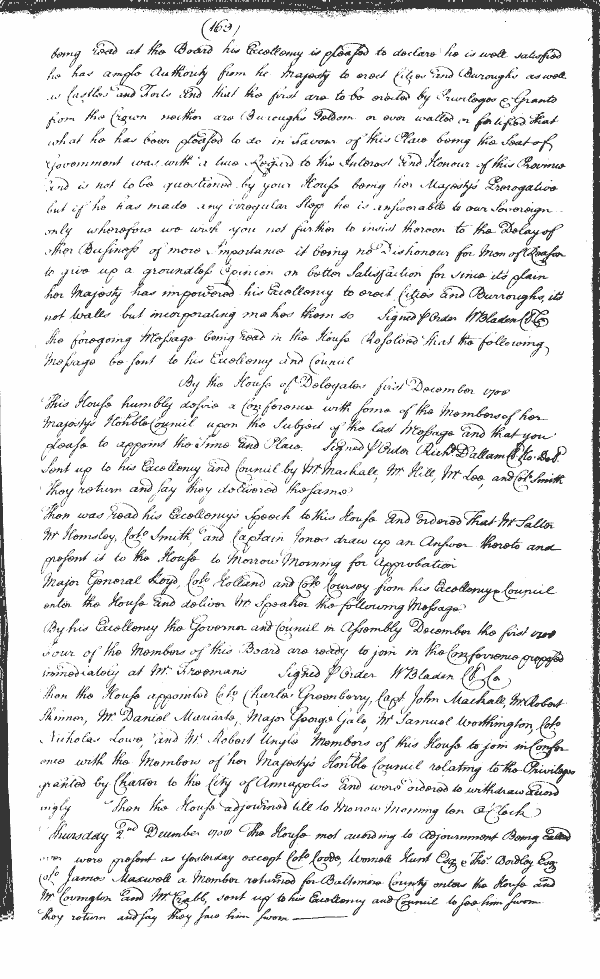 (163)
being read at the Board his Excellency is pleased to declare he is well satisfied
he has ample Authority from he Majesty to erect Cities and Burroughs as well
as Castles and Forts And that the first are to be erected by Priviledges & Grants
from the Crown neither are Buroughs seldom or ever walled or fortified that
what he has been pleased to do in Favour of this Place being the Seat of
Government was with a true Regard to the Interest and Honour of this Province
and is not to be questioned by your House being her Majestys Prerogative
but if he has made any irregular Step he is answerable to our Sovereign
only wherefore we wish you not further to insist thereon to the Delay of
other Business of more Importance it being no Dishonour for Men of Reason
to give up a groundless Opinion on better Satisfaction for since its plain
her Majesty has impowered his Excellency to erect Cities and Burroughs, its
not Walls but incorporating makes them so Signed P Order W Bladen Cl Co
the foregoing Message being read in the House Resolved that the following
Message be sent to his Excellency and Council
By the House of Delegates first December 1708
This House humbly desire a Conference with some of the Members of her
Majestys Honble Council upon the Subject of the last Message and that you
please to appoint the Time and Place. Signed P Order Richd Dallam Cl Ho. Del
Sent up to his Excellency and Council by Mr Mashall, Mr Hill, Mr Lee, and Colo Smith
they return and say they delivered the same
Then was read his Excellency's Speech to this House And ordered that Mr Salter
Mr Hemsley, Colo Smith and Captain Jones draw up an Answer thereto and
present it to the House to Morrow Morning for Approbation
Major General Loyd, Colo Holland and Colo Coursey from his Excellency & Council
enter the House and deliver Mr Speaker the following Message
By his Excellency the Governor and Council in Assembly December the first 1708
Four of the Members of this Board are ready to join in the Conferrence proposed
immediately at Mr Freemans Signed P Order W Bladen Cl Co
then the House appointed Colo Charles Greenberry, Capt John Mashall, Mr Robert
Skinner, Mr Daniel Mariarte, Major George Gale, Mr Samuel Worthington, Colo
Nicholas Lowe and Mr Robert Ungle Members of this House to join in Confer
ence with the Members of her Majestys Honble Council relating to the Privileges
granted by Charter to the City of Annapolis and were ordered to withdraw accord
ingly Then the House adjourned till to Morrow Morning ten o Clock
Thursday 2nd December 1708 The House met according to Adjournment Being called
over were present as Yesterday except Colo Lowe, Wornell Hunt Esq & Thos Bordley Esq
Colo James Maxwell a Member returned for Baltimore County enters the House and
Mr Covington and Mr Crabb, sent up to his Excellency and Council to see him sworn
they return and say they saw him sworn